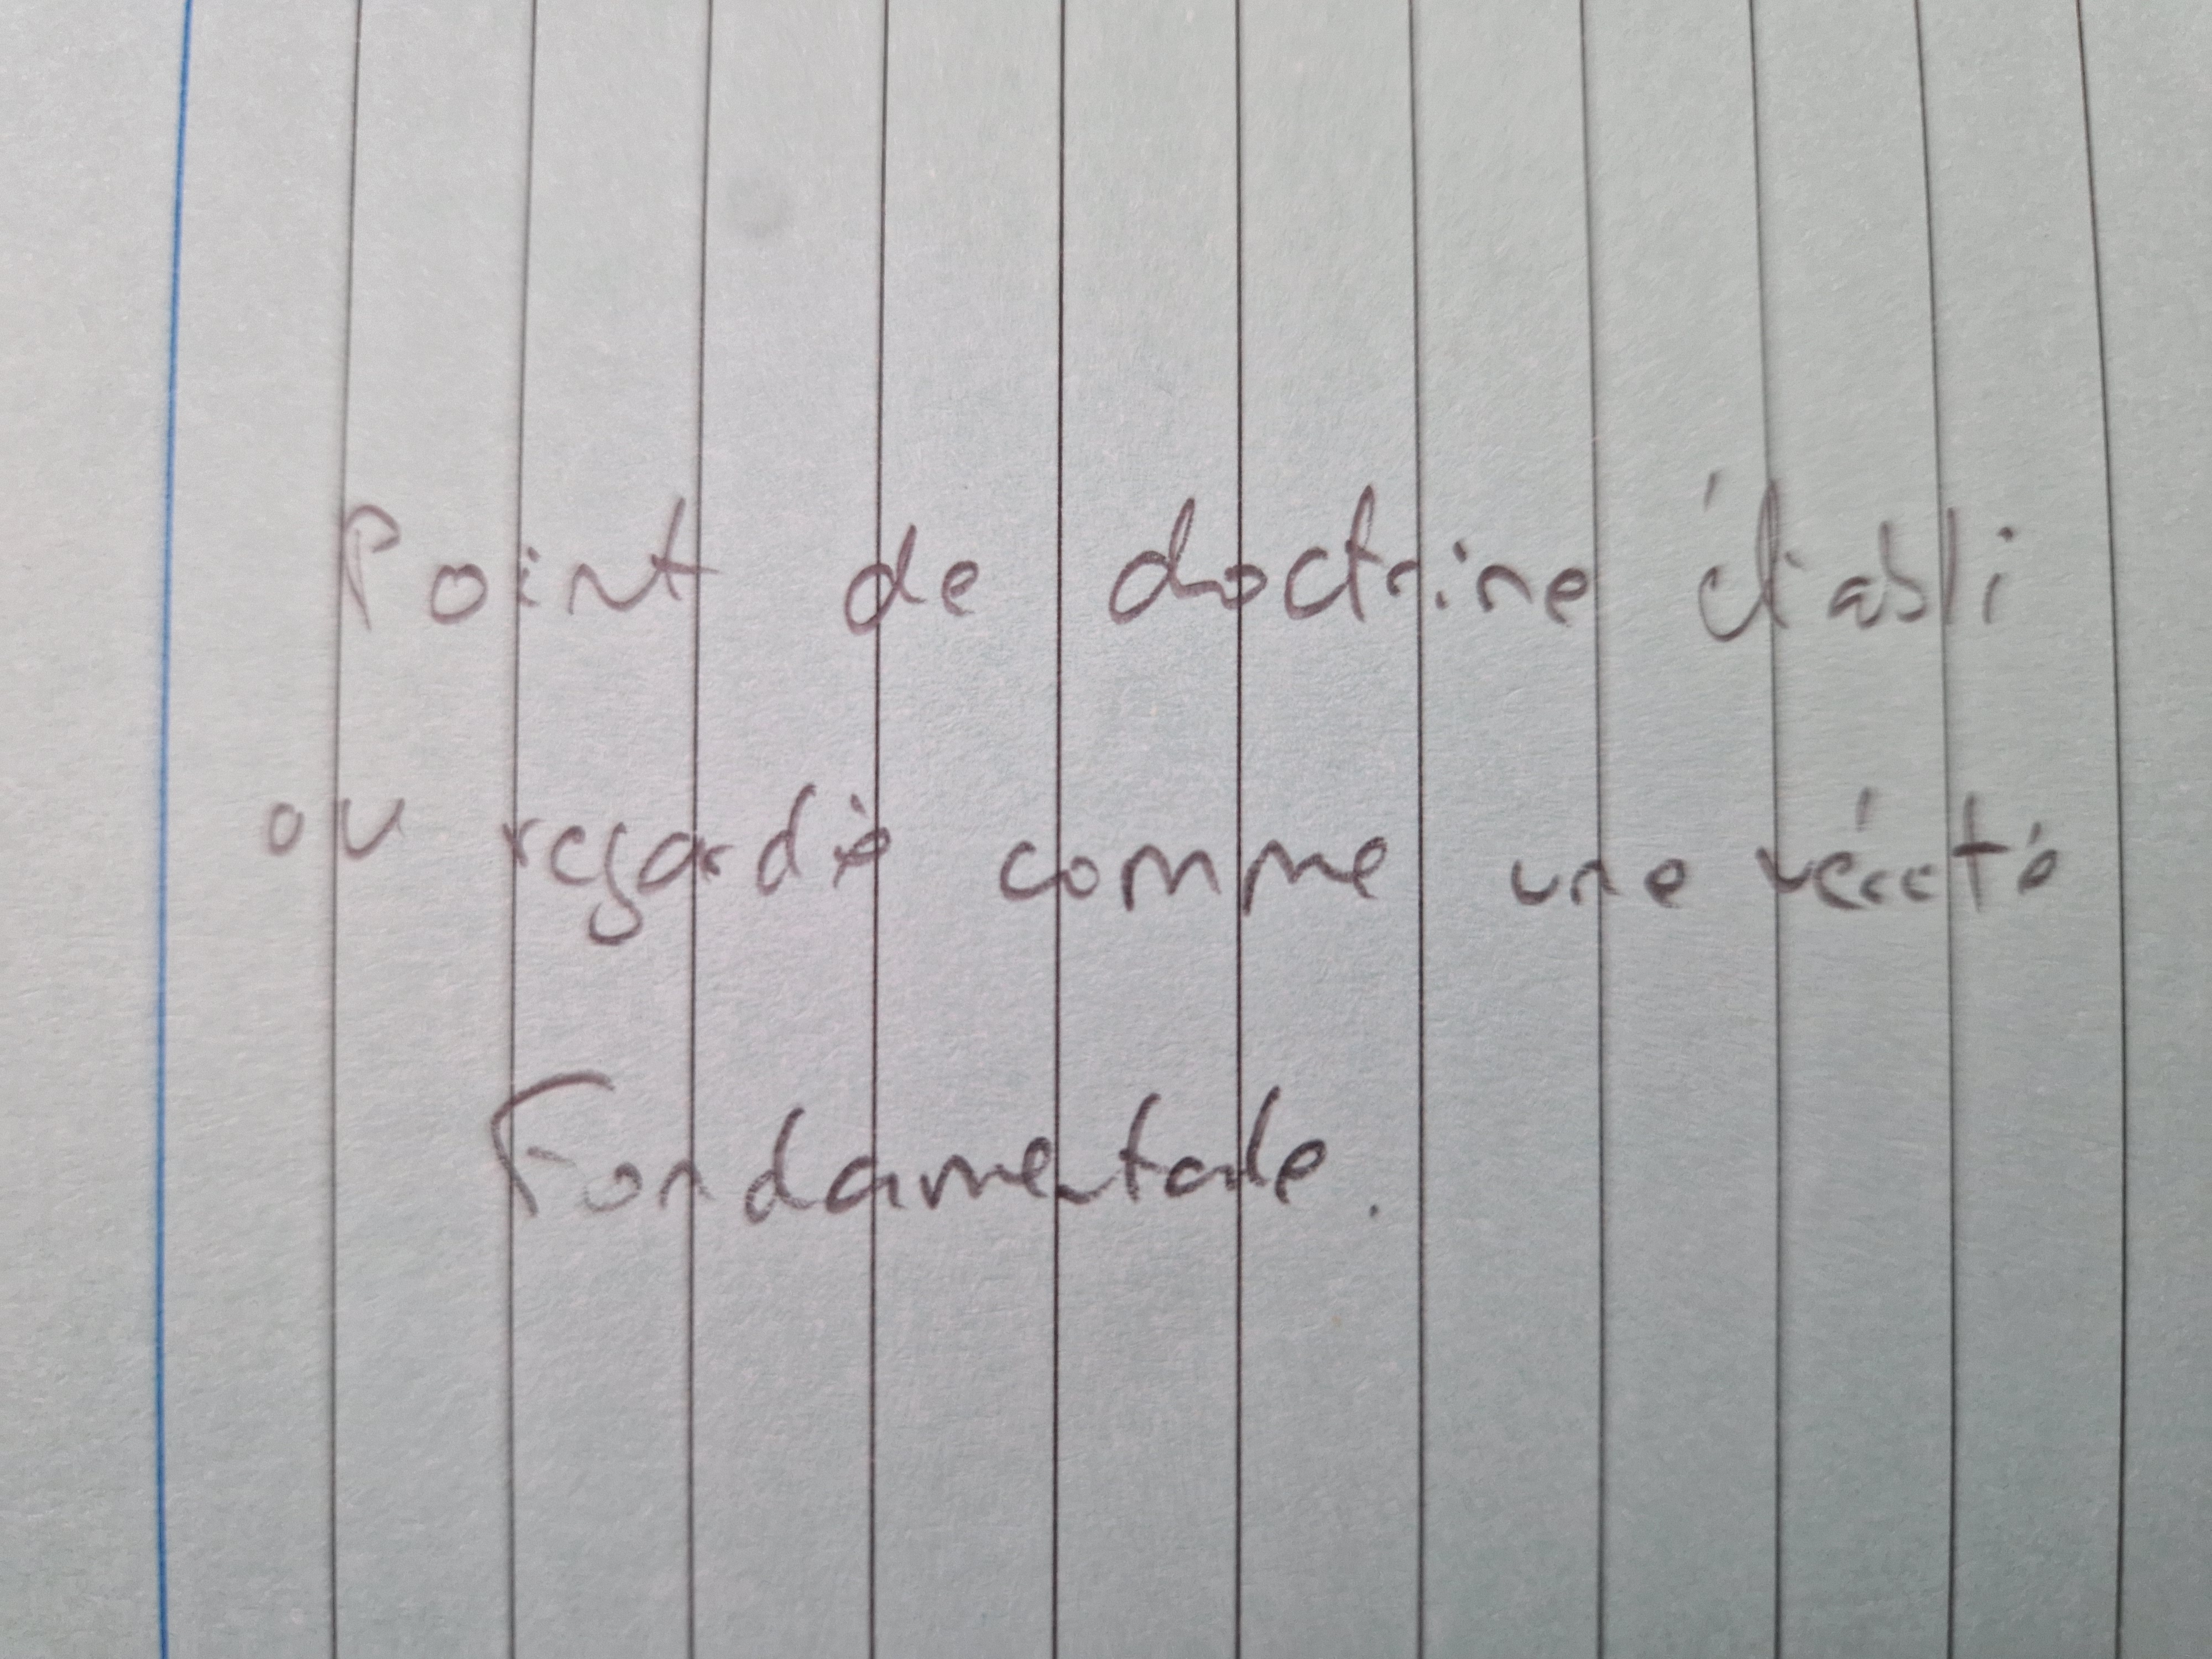 Point de doctrine établi
ou regardé comme une vérité
Fondamentale.